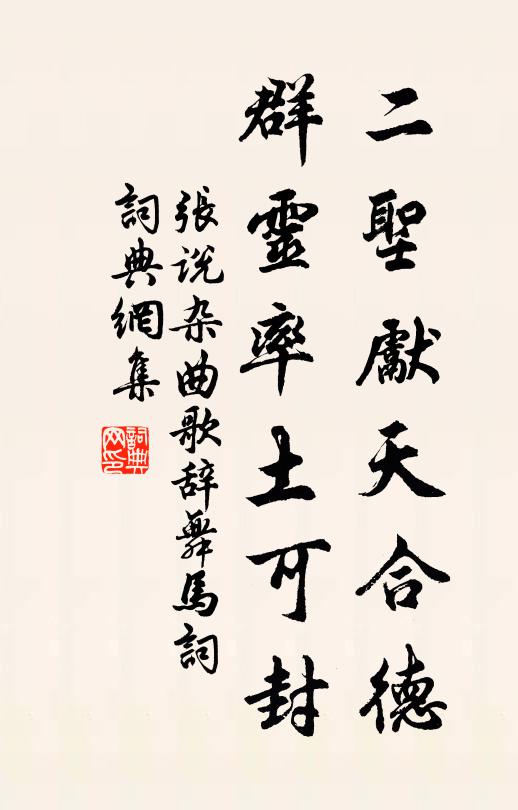 二聖獻天合德
群靈率土可封
張说杂曲歌辞舞馬詞
詞典網集
詞典网印